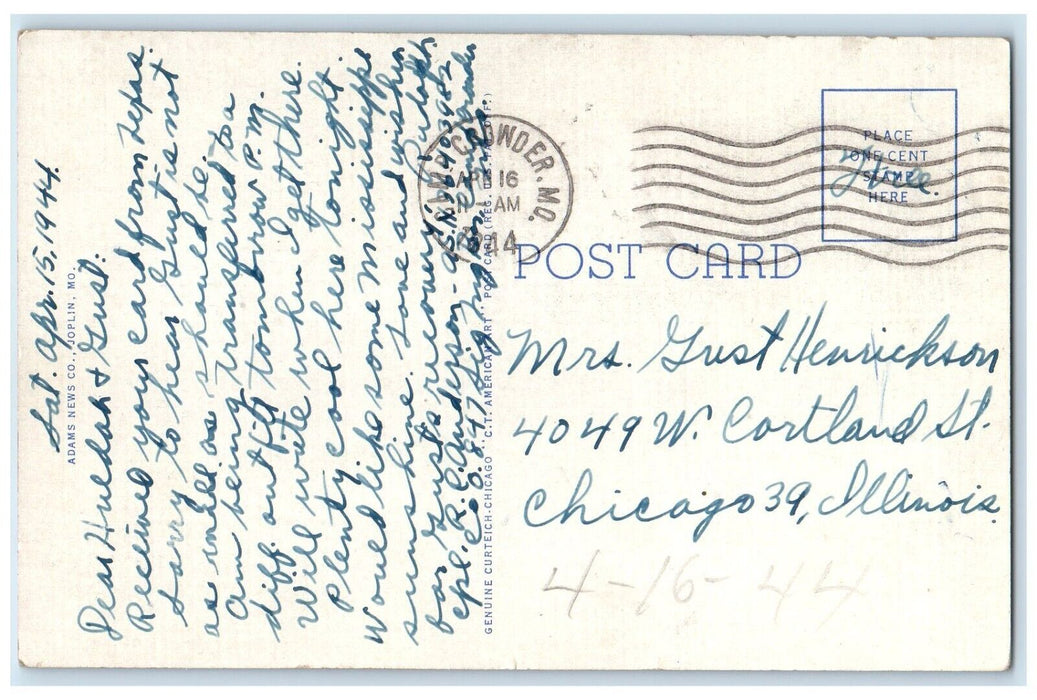 Sat. Apr. 15, 1944.
Dear Huldah & Gust:
Received your card from Texas.
Sorry to hear Gust is not
as well as should be.
Am being transferred to a
diff. outfit tomorrow P.M.
Will write when I get there.
Plenty cool here tonight.
Would like some Mississippi
sunshine. Love and wishes
for Gust's recovery.
Cpl. R.C. Anderson
ADAMS NEWS CO., JOPLIN, MO.
GENUINE CURTEICH-CHICAGO "C.T. AMERICAN ART" POST CARD (REG. U.S. PAT. OFF.)
CAMP CROWDER, MO.
APR 16
AM
1944
PLACE
ONE CENT
STAMP
HERE
Free.
POST CARD
Mrs. Gust Henrickson
4049 W. Cortland St.
Chicago 39, Illinois.
4-16-44